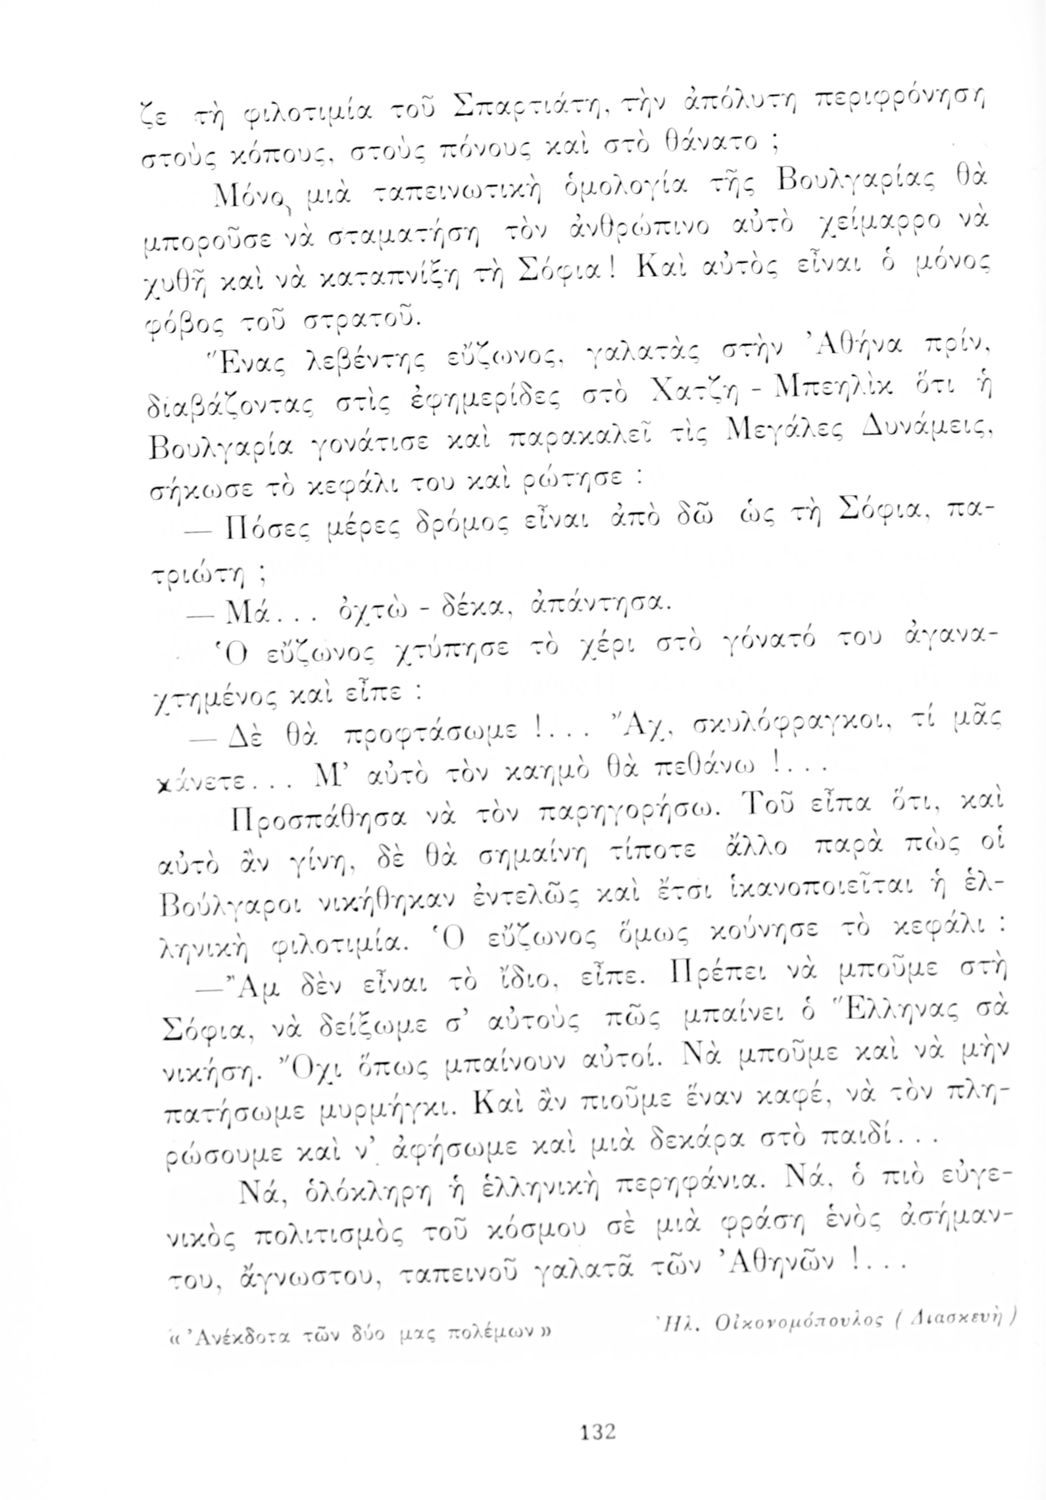 ζε τὴ φιλοτιμία τοῦ Σπαρτιάτη, τὴν ἀπόλυτη περιφρόνηση
στοὺς κόπους, στοὺς πόνους καὶ στὸ θάνατο ;
Μόνο μιὰ ταπεινωτικὴ ὁμολογία τῆς Βουλγαρίας θὰ
μποροῦσε νὰ σταματήση τὸν ἀνθρώπινο αὐτὸ χείμαρρο νὰ
χυθῆ καὶ νὰ καταπνίξη τὴ Σόφια! Καὶ αὐτὸς εἶναι ὁ μόνος
φόβος τοῦ στρατοῦ.
Ἕνας λεβέντης εὔζωνος, γαλατὰς στὴν Ἀθήνα πρίν,
διαβάζοντας στὶς ἐφημερίδες στὸ Χατζῆ - Μπεηλὶκ ὅτι ἡ
Βουλγαρία γονάτισε καὶ παρακαλεῖ τὶς Μεγάλες Δυνάμεις,
σήκωσε τὸ κεφάλι του καὶ ρώτησε :
— Πόσες μέρες δρόμος εἶναι ἀπὸ δῶ ὡς τὴ Σόφια, πα-
τριώτη ;
— Μά... ὀχτὼ - δέκα, ἀπάντησα.
Ὁ εὔζωνος χτύπησε τὸ χέρι στὸ γόνατό του ἀγανα-
χτημένος καὶ εἶπε :
— Δὲ θὰ προφτάσωμε !... Ἄχ, σκυλόφραγκοι, τί μᾶς
κάνετε... Μ’ αὐτὸ τὸν καημὸ θὰ πεθάνω !...
Προσπάθησα νὰ τὸν παρηγορήσω. Τοῦ εἶπα ὅτι, καὶ
αὐτὸ ἂν γίνη, δὲ θὰ σημαίνη τίποτε ἄλλο παρὰ πὼς οἱ
Βούλγαροι νικήθηκαν ἐντελῶς καὶ ἔτσι ἱκανοποιεῖται ἡ ἑλ-
ληνικὴ φιλοτιμία. Ὁ εὔζωνος ὅμως κούνησε τὸ κεφάλι :
— Ἂμ δὲν εἶναι τὸ ἴδιο, εἶπε. Πρέπει νὰ μποῦμε στὴ
Σόφια, νὰ δείξωμε σ’ αὐτοὺς πῶς μπαίνει ὁ Ἕλληνας σὰ
νικήση. Ὄχι ὅπως μπαίνουν αὐτοί. Νὰ μποῦμε καὶ νὰ μὴν
πατήσωμε μυρμήγκι. Καὶ ἂν πιοῦμε ἕναν καφέ, νὰ τὸν πλη-
ρώσουμε καὶ ν’ ἀφήσωμε καὶ μιὰ δεκάρα στὸ παιδί...
Νά, ὁλόκληρη ἡ ἑλληνικὴ περηφάνια. Νά, ὁ πιὸ εὐγε-
νικὸς πολιτισμὸς τοῦ κόσμου σὲ μιὰ φράση ἑνὸς ἀσήμαν-
του, ἄγνωστου, ταπεινοῦ γαλατᾶ τῶν Ἀθηνῶν !...
« Ἀνέκδοτα τῶν δύο μας πολέμων » Ἠλ. Οἰκονομόπουλος ( Διασκευὴ )
132